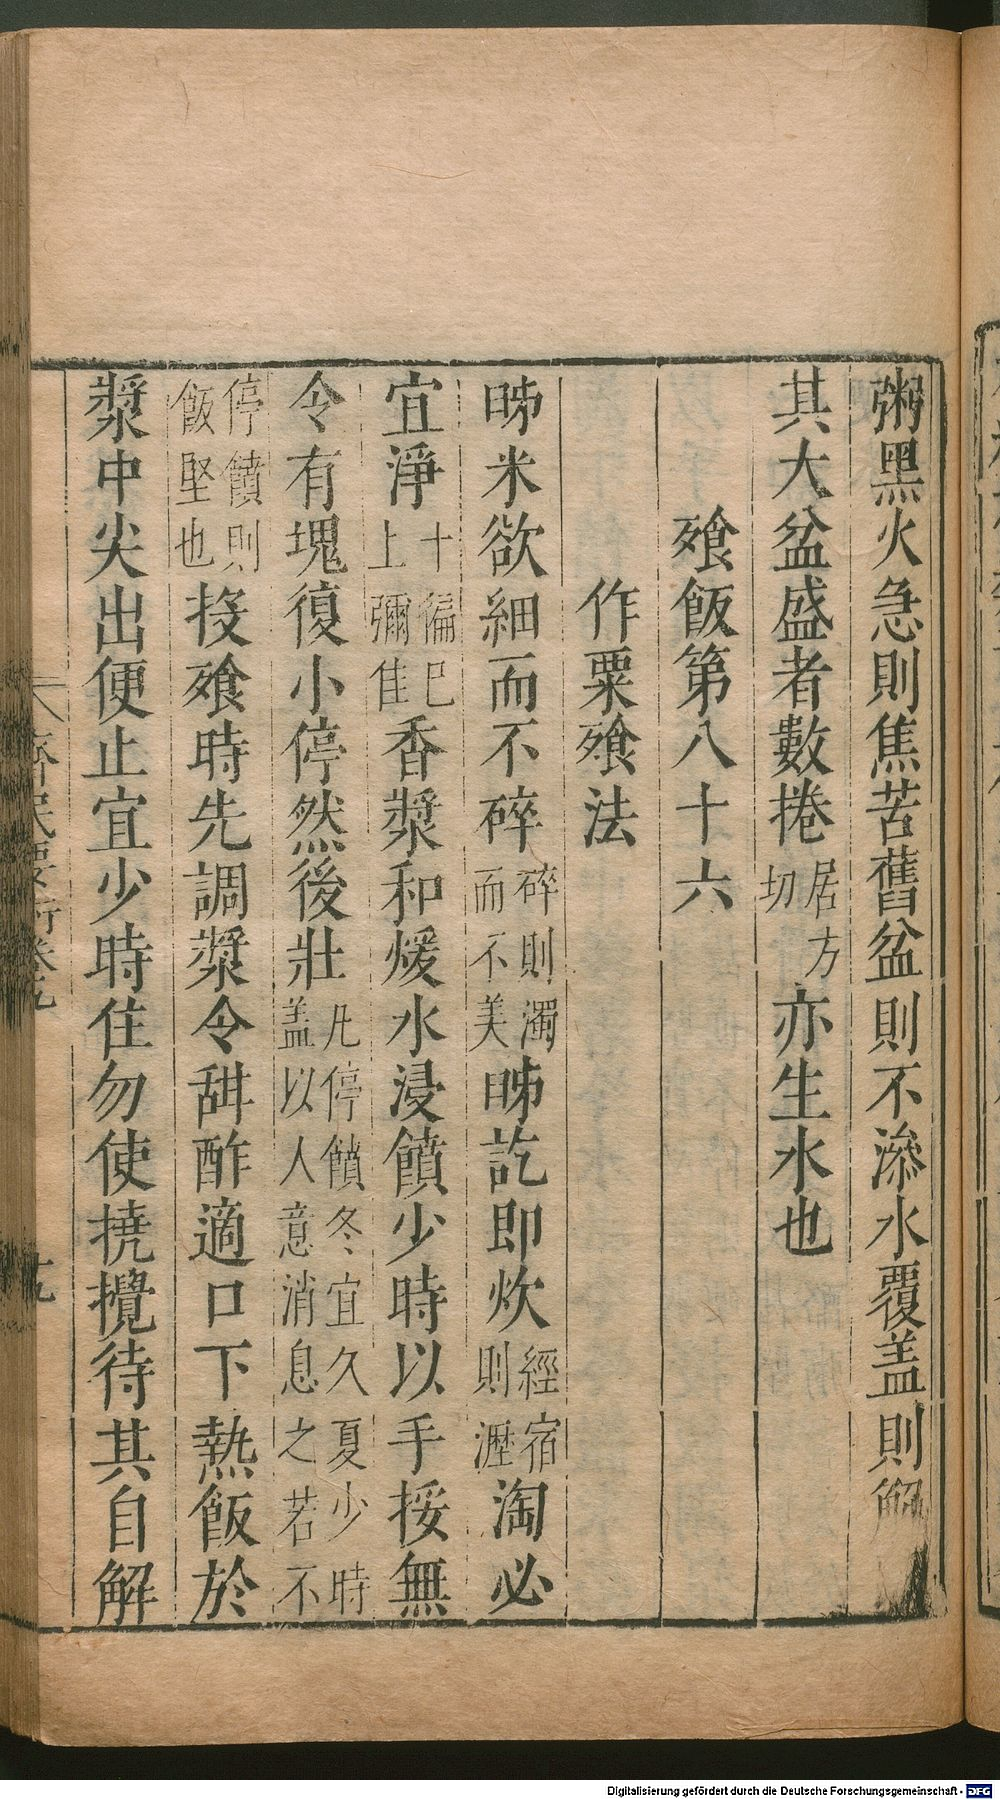 粥黑火急則焦苦舊盆則不滲水覆盖則解
其大盆盛者數捲居方切亦生水也
飱飯第八十六
作粟飱法
𣇃米欲細而不碎碎則濁而不美𣇃訖即炊經宿則瀝淘必
宜淨十徧巳上彌佳香漿和煖水浸饙少時以手挼無
令有塊復小停然後壯凡停饙冬宜久夏少時盖以人意消息之若不
停饙則飯堅也投飱時先調漿令甜酢適口下熱飯於
漿中尖出便止宜少時住勿使撓攪待其自解
Digitalisierung gefördert durch die Deutsche Forschungsgemeinschaft - DFG